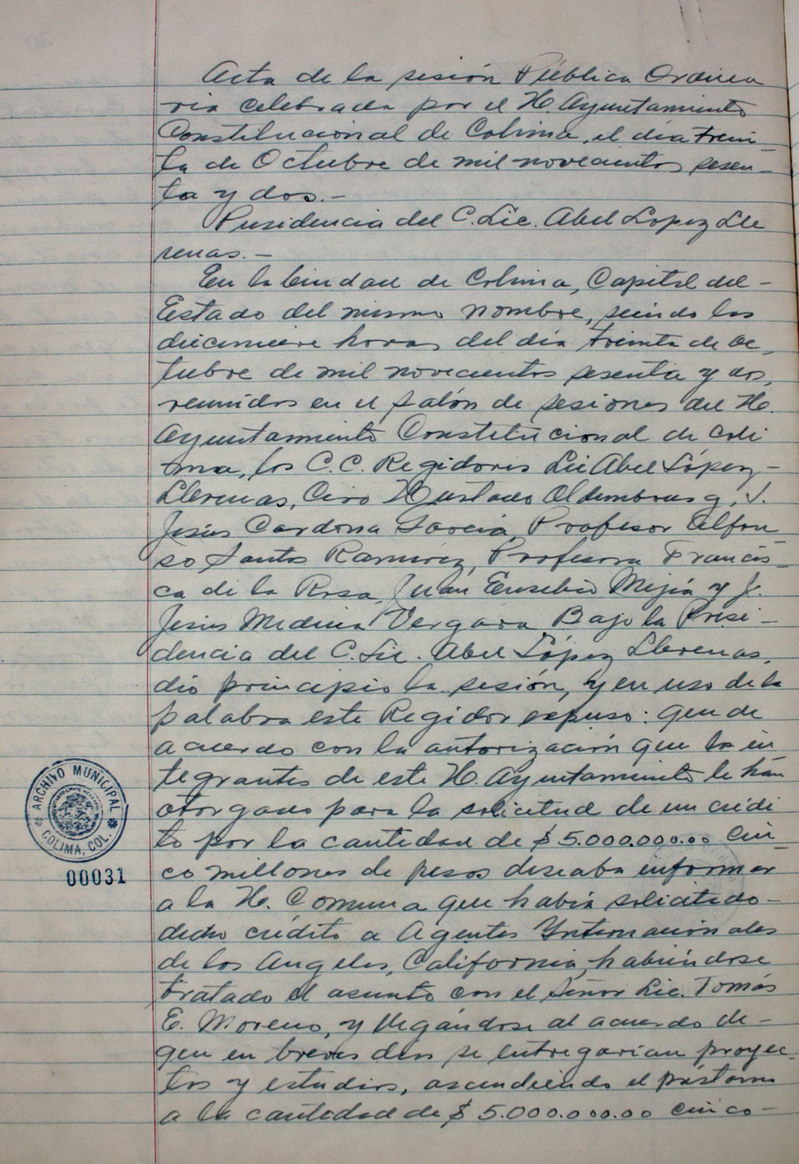 Acta de la sesión Pública Ordina
ria celebrada por el H. Ayuntamiento
Constitucional de Colima, el día trein-
ta de Octubre de mil novecientos sesen-
ta y dos.-
Presidencia del C. Lic. Abel Lopez Lle
renas.-
En la Ciudad de Colima, Capital del-
Estado del mismo nombre, siendo las
diecinueve horas del día treinta de Oc-
tubre de mil novecientos sesenta y dos,
reunidos en el salón de sesiones del H.
Ayuntamiento Constitucional de Coli
ma, los C.C. Regidores Lic Abel López-
Llerenas, Ciro Hustavo Oldembourg, J.
Jesús Cardona García, Profesor Alfon
so Santos Ramírez, Profesora Francis-
ca de la Rosa, Juan Eusebio Mejía y J.
Jesús Medina Vergara Bajo la Presi-
dencia del C. Lic. Abel López Llerenas,
dió principio la sesión, y en uso de la
palabra este Regidor expuso: que de
acuerdo con la autorización que los in
tegrantes de este H. Ayuntamiento le han
otorgado para la solicitud de un crédi
to por la cantidad de $ 5.000.000.00 cin-
co millones de pesos deseaba informar
a la H. Comuna que había solicitado-
dicho crédito a Agentes Internacionales
de los Angeles, California, habiéndose
tratado el asunto con el Señor Lic. Tomás
E. Moreno, y llegándose al acuerdo de-
que en breves dias se entregarian proyec-
tos y estudios, ascendiendo el préstamo
a la cantidad de $ 5.000.000.00 cinco-
ARCHIVO MUNICIPAL
COLIMA, COL.
00031